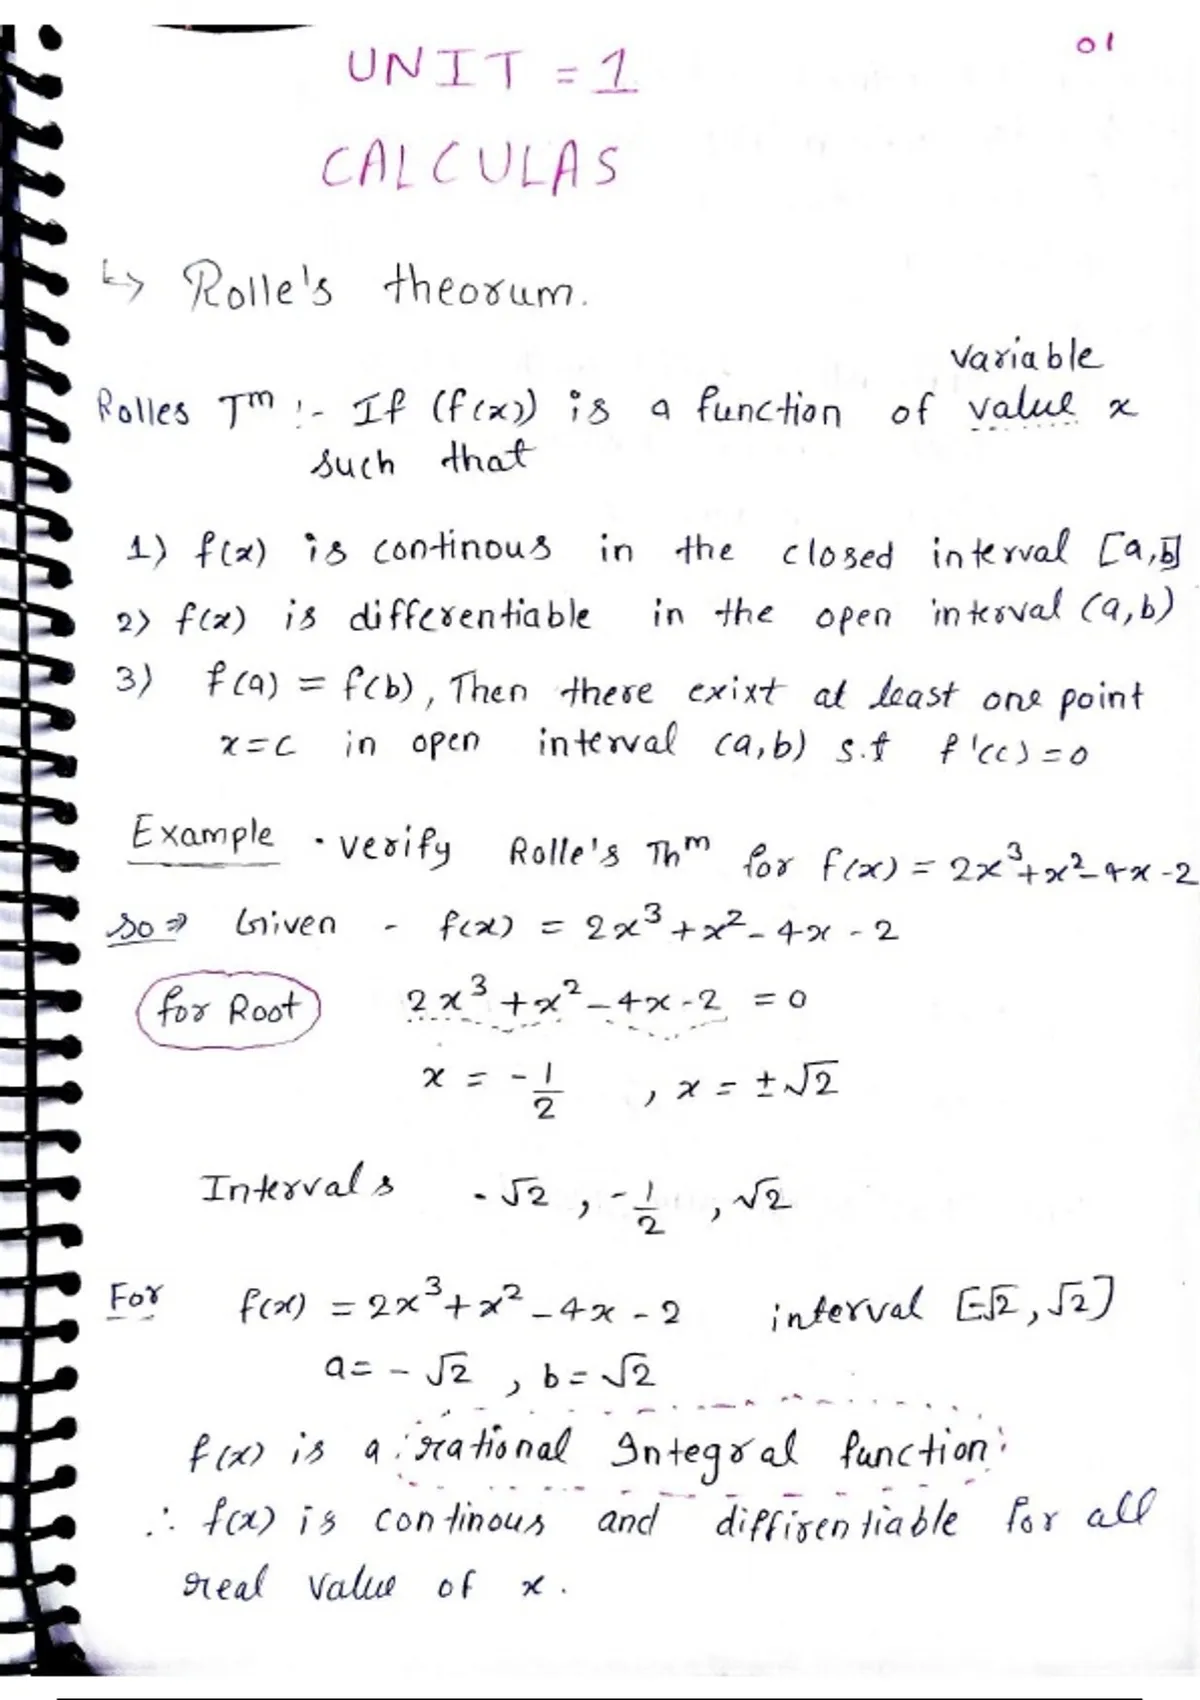 01
UNIT = 1
CALCULAS
↳ Rolle's theorum.
variable
Rolles Tᵐ :- If (f(x)) is a function of value x
such that
1) f(x) is continous in the closed interval [a,b]
2) f(x) is differentiable in the open interval (a,b)
3) f(a) = f(b), Then there exixt at least one point
x=c in open interval (a,b) s.t f'(c)=0
Example · verify Rolle's Thᵐ for f(x) = 2x³+x²-4x-2
so ⇒ Given - f(x) = 2x³+x²-4x-2
for Root 2x³+x²-4x-2 = 0
x = -1/2 , x = ±√2
Intervals -√2 , -1/2 , √2
For f(x) = 2x³+x²-4x-2 interval [-√2,√2]
a=-√2 , b=√2
f(x) is a rational Integral function
∴ f(x) is continous and diffirentiable for all
real value of x.